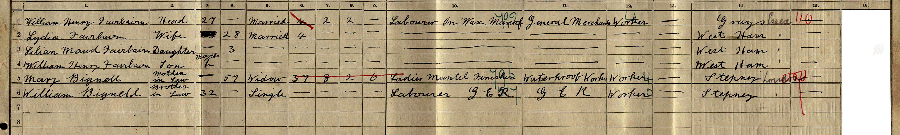 1 William Henry Fairbairn Head 27 — Married 4 2 2 — Labourer On Wax General Merchants Worker — Grays Essex
2 Lydia Fairbairn Wife 28 Married 4 — West Ham
3 Lilian Maud Fairbairn Daughter 3 — West Ham
4 William Henry Fairbairn Son months — West Ham
5 Mary Bignell Mother in Law 57 Widow 37 8 2 6 Ladies Mantel Finisher Waterproof Works Worker — Stepney London
6 William Bignell Brother in Law 32 Single — Labourer G E R G E R Worker — Stepney
7
8